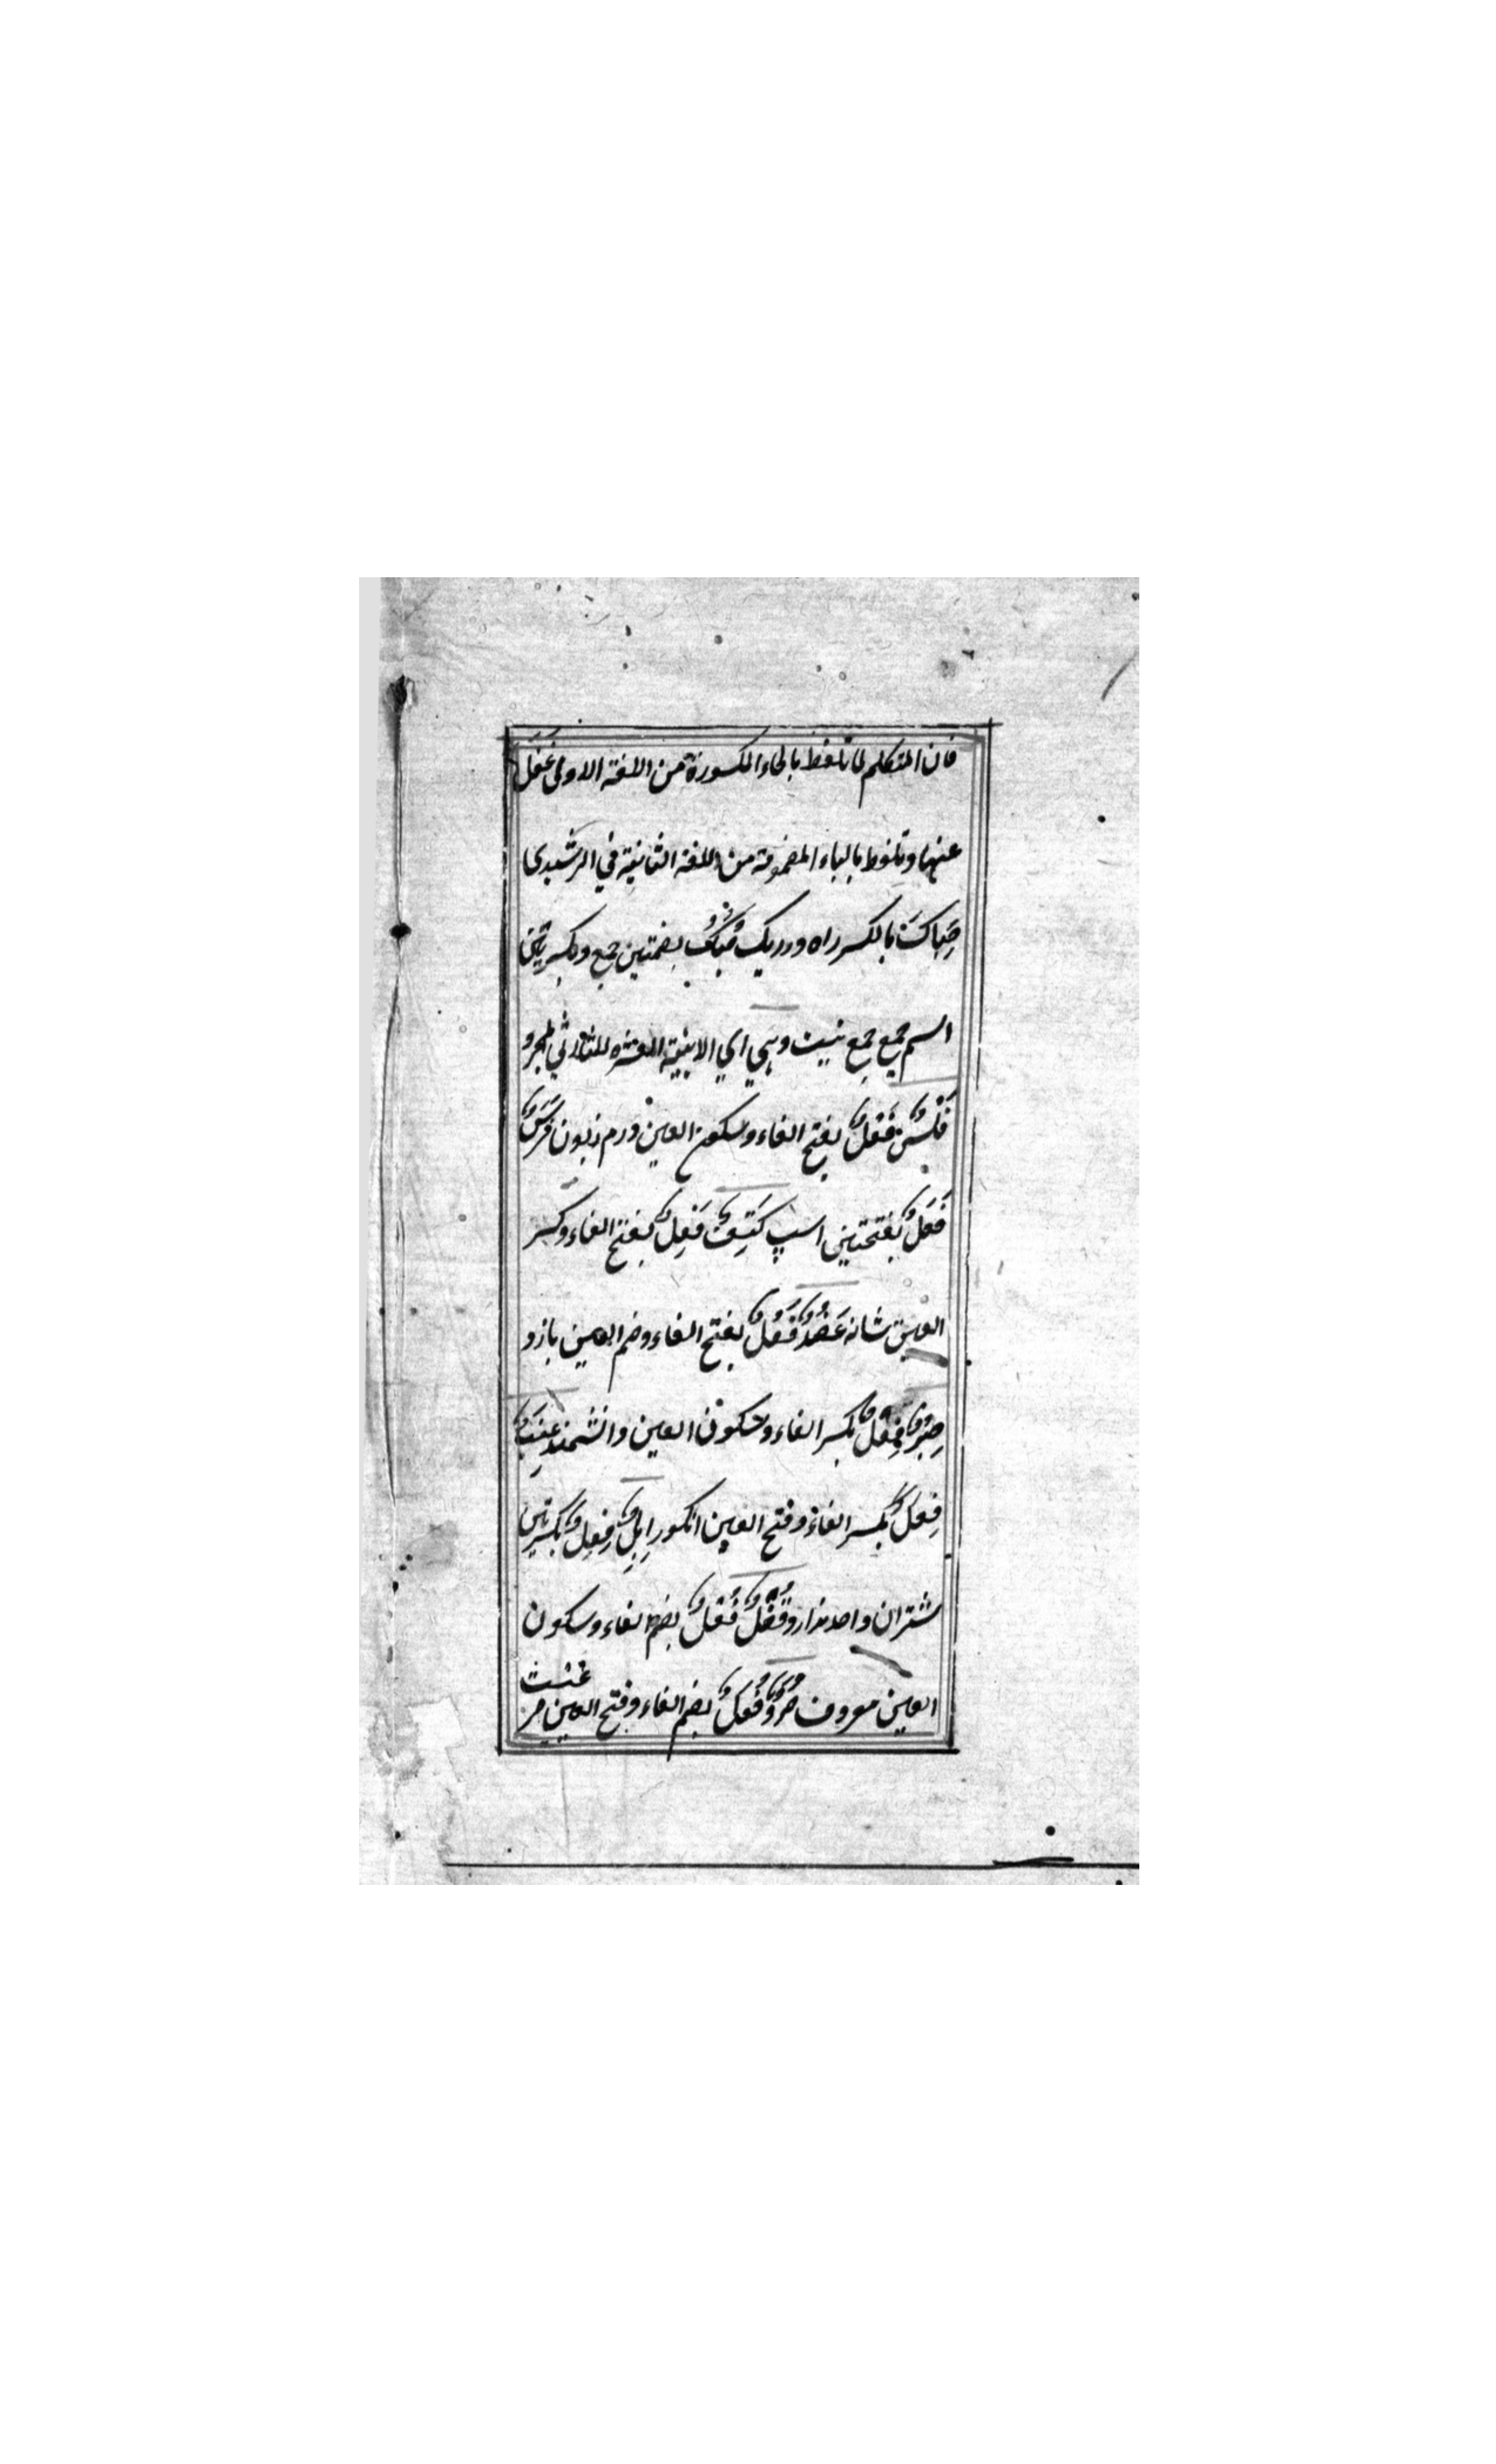 فان المتکلم لما تلفظ بالحاء المکسورة من اللغة الاولی غفل
عنها وتلفظ بالباء المضمومة من اللغة الثانیة في الرشیدی
حِباکَ بالکسر راه ودر یک حُبُکُ بضمتین جمع وبکسرتین
اسم جمع جمع نیست وهي اي الابنیة العشره للثلاثي المجرد
فَلْسٌ فَعْلٌ بفتح الفاء وسکون العین درم زبون فَرَسٌ
فَعَلٌ بفتحتین اسپ کَتِفٌ فَعِلٌ بفتح الفاء وکسر
العین شانه عَضُدٌ فَعُلٌ بفتح الفاء وضم العین بازو
حِبْرٌ فِعْلٌ بکسر الفاء وسکون العین دانشمند عِنَبٌ
فِعَلٌ بکسر الفاء وفتح العین انکور اِبِلٌ فِعِلٌ بکسرتین
شتران واحد ندارد قُفْلٌ فُعْلٌ بضم الفاء وسکون
العین معروف صُرَدٌ فُعَلٌ بضم الفاء وفتح العین